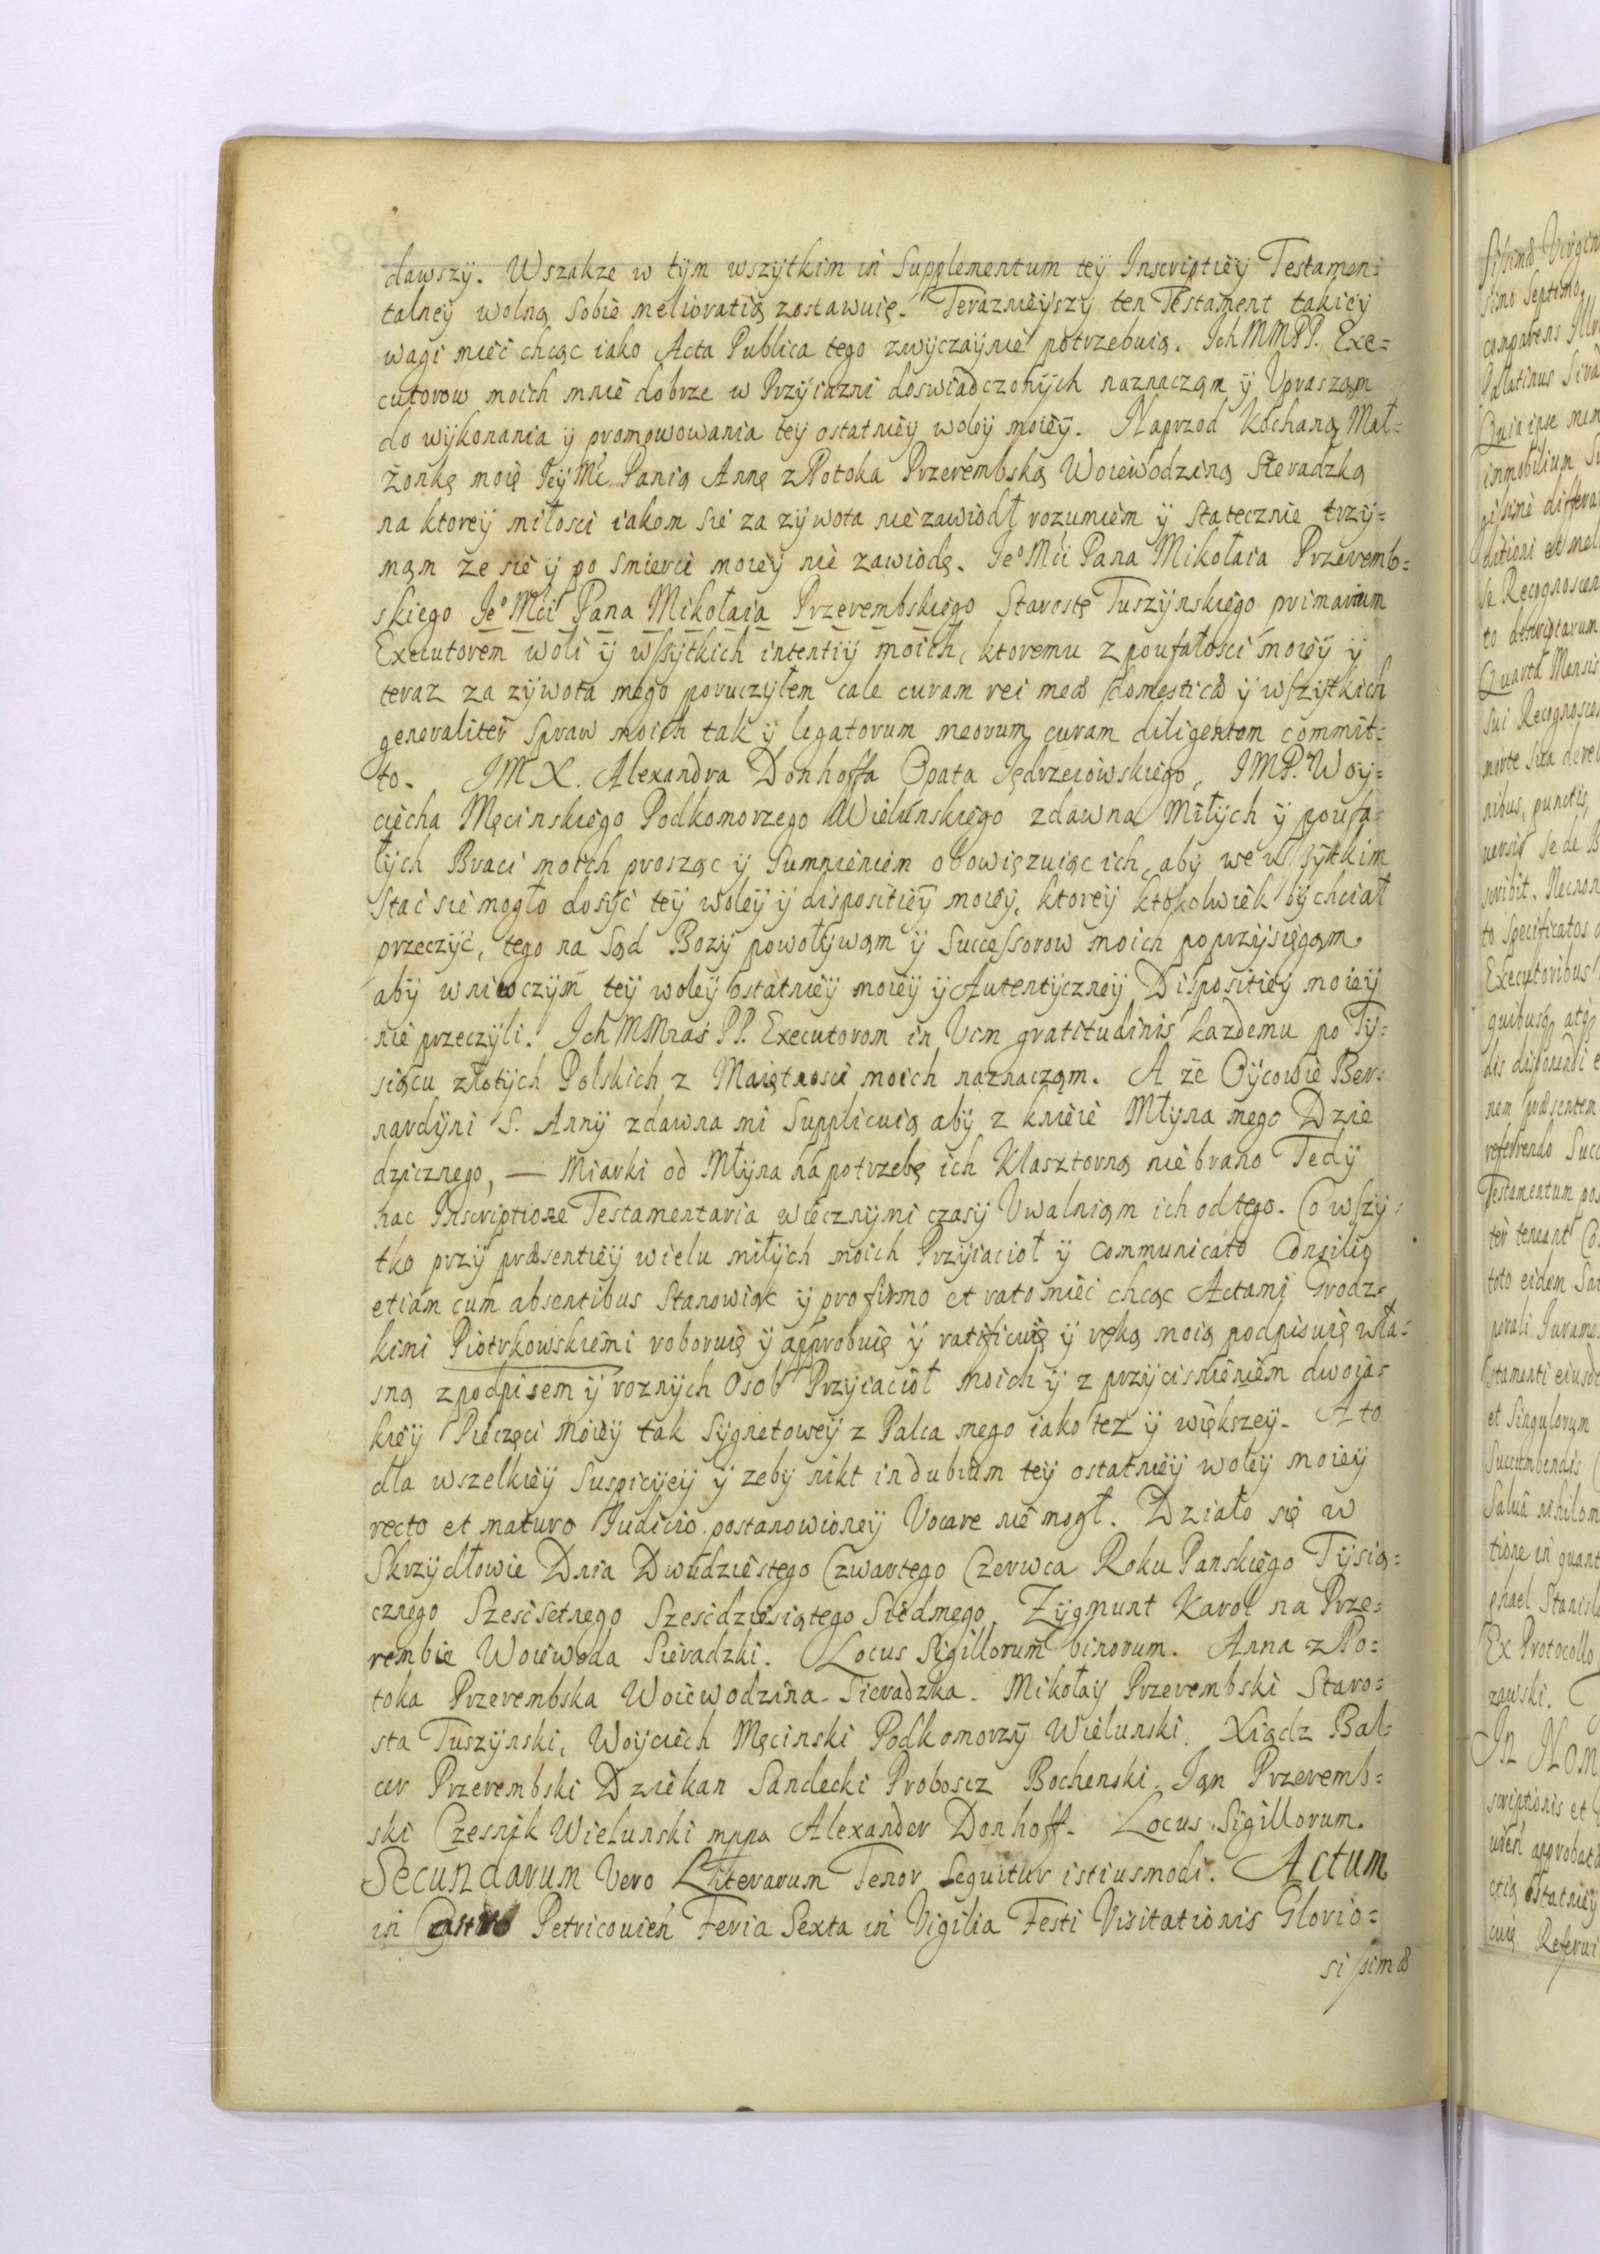 dawszy. Wszakze w tym wszytkim in Supplementum tey Inscriptiey Testamen=
talney wolną sobie melioratią zostawuię. Teraznieyszy ten Testament takiey
wagi mieć chcąc iako Acta Publica tego zwyczaynie potrzebuią. Ich MMPP. Exe=
cutorow moich mnie dobrze w Przyiazni doswiadczonych naznaczam y Upraszam
do wykonania y promowowania tey ostatniey woley moiey. Naprzod Kochaną Mał=
żonkę moię Jey Mć Panią Annę z Potoka Przerembską Woiewodziną Sieradzką
na ktorey miłosci iakom sie za zywota nie zawiodł rozumiem y statecznie trzy=
mam ze sie y po smierci moiey nie zawiodę. Je⁰ Mći Pana Mikołaia Przeremb=
skiego Je⁰ Mći Pana Mikołaia Przerembskiego Starostę Tuszynskiego primarium
Executorem woli y wszytkich intentiy moich, ktoremu z poufałosci moiey y
teraz za zywota mego poruczyłem cale curam rei meæ domesticæ y wszytkich
generaliter Spraw moich tak y legatorum meorum curam diligentem commit=
to. JMX. Alexandra Donhoffa Opata Jędrzeiowskiego, JMP. Woy=
ciecha Męcinskiego Podkomorzego Wielunskiego zdawna Miłych y poufa=
łych Braci moich prosząc y Sumnieniem obowięzuiąc ich, aby we wszytkim
Stać sie mogło dosyć tey woley y dispositiey moiey, ktorey ktokolwiek by chciał
przeczyć, tego na Sąd Bozy powoływam y Successorow moich poprzysięgam
aby wniwczym tey woley ostatniey moiey y Autentyczney Dispositiey moiey
nie przeczyli. Ich MMnas PP. Executorom in Vim gratitudinis kazdemu po Ty=
siącu złotych Polskich z Maiętnosci moich naznaczam. A że Oycowie Ber=
nardyni S. Anny zdawna mi Supplicuią aby z kniei Młyna mego Dzie
dzicznego, — Miarki od Młyna na potrzebę ich Klasztorną nie brano Tedy
hac Inscriptione Testamentaria wiecznymi czasy Uwalniam ich od tego. Co wszy=
tko przy præsentiey wielu miłych moich Przyiacioł y communicato Consilio
etiam cum absentibus Stanowiąc y pro firmo et rato mieć chcąc Actami Grodz=
kimi Piotrkowskiemi roboruię y approbuię y ratificuię y ręką moią podpisuię wła=
sną z podpisem y roznych Osob Przyiacioł moich y z przycisnieniem dwoia=
kiey Pieczęci moiey tak Sygnetowey z Palca mego iako tez y większey. A to
dla wszelkiey Suspicyey y zeby nikt in dubium tey ostatniey woley moiey
recto et maturo Judicio postanowioney Vocare nie mogł. Działo się w
Skrzydłowie Dnia Dwudziestego Czwartego Czerwca Roku Panskiego Tysią=
cznego Szescsetnego Szescdziesiątego Siedmego. Zygmunt Karol na Prze=
rembie Woiewoda Sieradzki. Locus Sigillorum binorum. Anna z Po=
toka Przerembska Woiewodzina Sieradzka. Mikołay Przerembski Staro=
sta Tuszynski, Woyciech Męcinski Podkomorzy Wielunski. Xiądz Bal=
cer Przerembski Dziekan Sandecki Proboscz Bochenski. Jan Przeremb=
ski Czesnik Wielunski mppa Alexander Donhoff. Locus Sigillorum.
Secundarum Vero Litterarum Tenor Sequitur istiusmodi. Actum
in Castro Petricovien Feria Sexta in Vigilia Festi Visitationis Glorio=
sissimæ